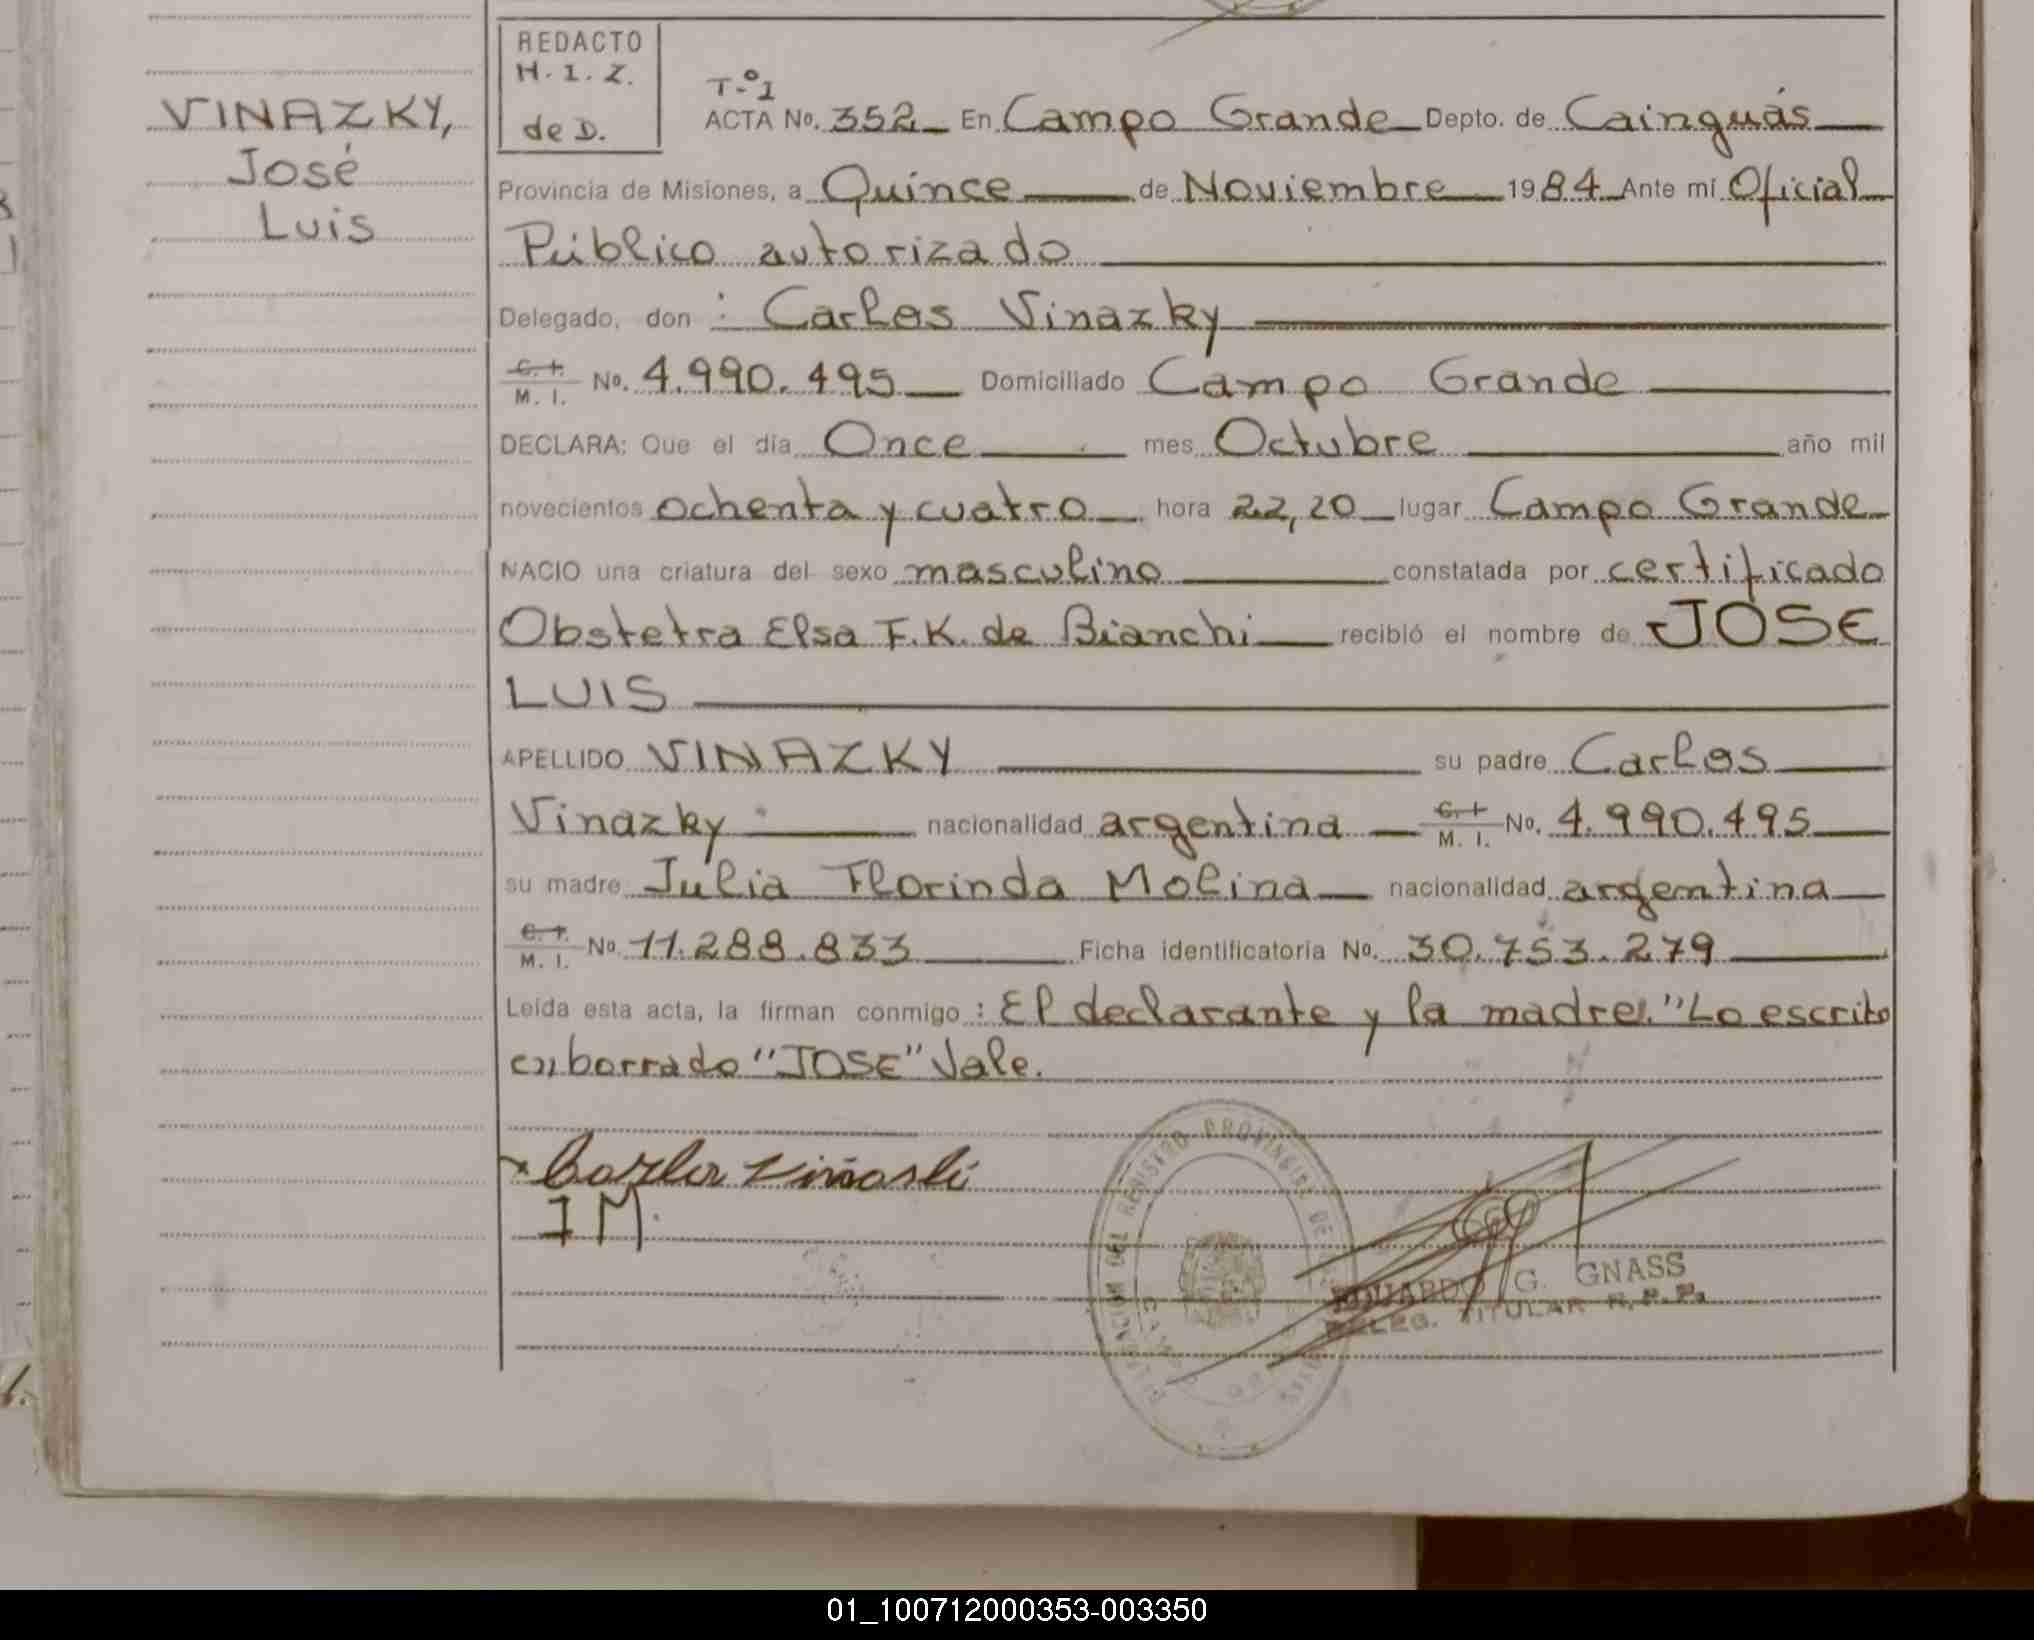 VINAZKY,
José
Luis
REDACTO
H. I. Z.
de D.
T.º I
ACTA No. 352 En Campo Grande Depto. de Cainguás
Provincia de Misiones, a Quince de Noviembre 1984 Ante mí Oficial
Público autorizado
Delegado, don : Carlos Vinazky
C. I. M. I. No. 4.990.495 Domiciliado Campo Grande
DECLARA: Que el día Once mes Octubre año mil
novecientos ochenta y cuatro hora 22,20 lugar Campo Grande
NACIO una criatura del sexo masculino constatada por certificado
Obstetra Elsa F.K. de Bianchi recibió el nombre de JOSE
LUIS
APELLIDO VINAZKY su padre Carlos
Vinazky nacionalidad argentina C. I. M. I. No. 4.990.495
su madre Julia Florinda Molina nacionalidad argentina
C. I. M. I. No. 11.288.833 Ficha identificatoria No. 30.753.279
Leída esta acta, la firman conmigo : El declarante y la madre. "Lo escrito
en borrado "JOSE" Vale.
J M.
EDUARDO G. GNASS
DELEG. TITULAR R.P.P.
01_100712000353-003350